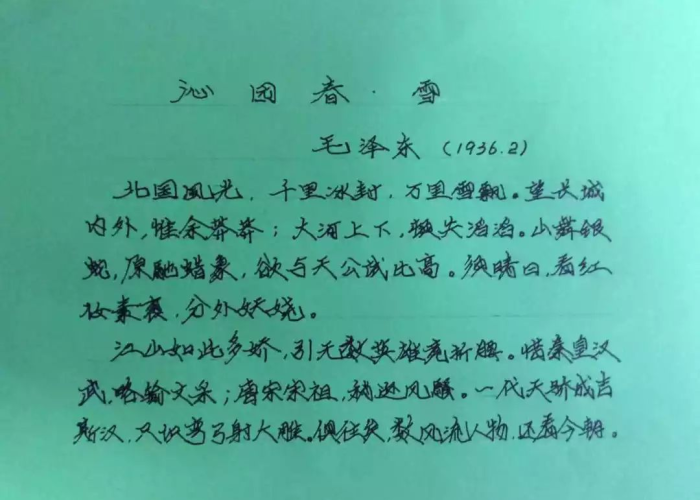 沁园春·雪
毛泽东 (1936.2)
北国风光，千里冰封，万里雪飘。望长城
内外，惟余莽莽；大河上下，顿失滔滔。山舞银
蛇，原驰蜡象，欲与天公试比高。须晴日，看红
妆素裹，分外妖娆。
江山如此多娇，引无数英雄竞折腰。惜秦皇汉
武，略输文采；唐宗宋祖，稍逊风骚。一代天骄成吉
斯汉，只识弯弓射大雕。俱往矣，数风流人物，还看今朝。